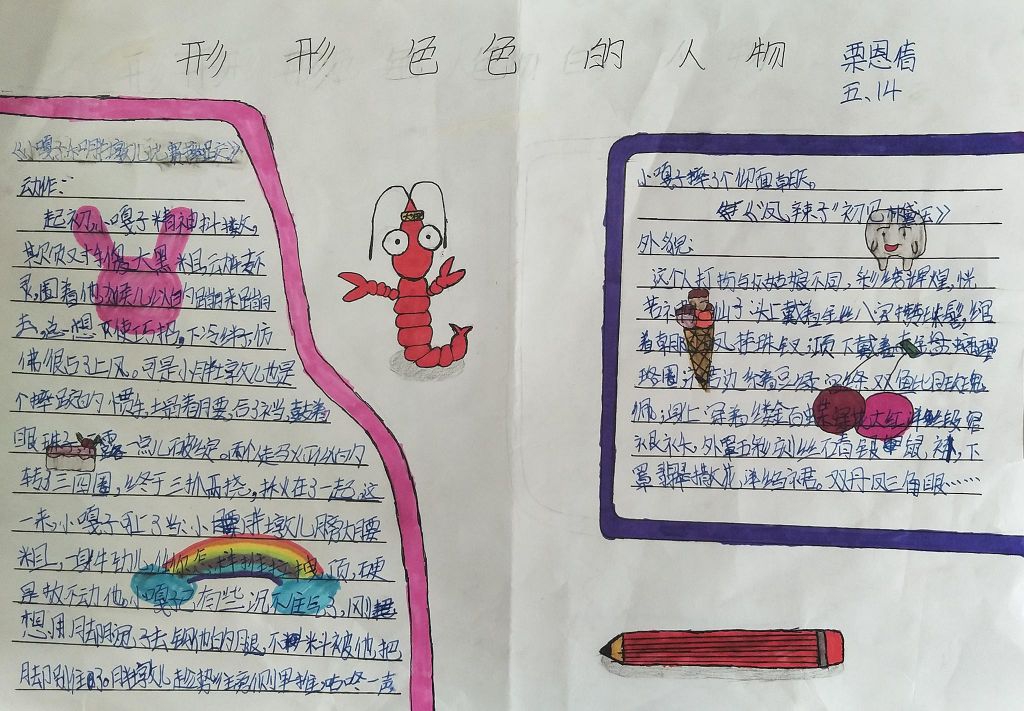 形形色色的人物
栗恩信
五、14
《小嘎子和胖墩儿比赛摔跤》
动作：
起初,小嘎子精神抖擞,
欺负对手傻大黑粗,动转不
灵,围着他,猴儿似的蹦来蹦
去,总想使巧招,下冷绊子,仿
佛很占了上风。可是小胖墩儿也是
个摔跤的惯手,塌着腰,合了裆,鼓着
眼珠子 露一点儿破绽。两个走马灯似的
转了三四圈,终于三抓两挠,揪在了一起。这
一来,小嘎子可上了当:小胖墩儿膀大腰
粗,一身牛劲儿,任你怎样推拉抻顶,硬
是扳不动他。小嘎子,有些沉不住气了,刚
想用脚腿子去钩他的腿,不料被他把
脚别住了。胖墩儿趁势往旁侧里推,咕咚一声
小嘎子摔了个仰面朝天。
《"凤辣子"初见林黛玉》
外貌:
这个人打扮与众姑娘不同,彩绣辉煌,恍
若 仙子:头上戴着金丝八宝攒珠髻,绾
着朝 凤挂珠钗,项下戴着赤金盘螭璎
珞圈,裙边系着豆绿宫绦双鱼比目玫瑰
佩,身上穿着缕金百蝶穿花大红洋缎窄
裉袄,外罩五彩刻丝石青银鼠褂,下
罩翡翠撒花洋绉裙。双丹凤三角眼……